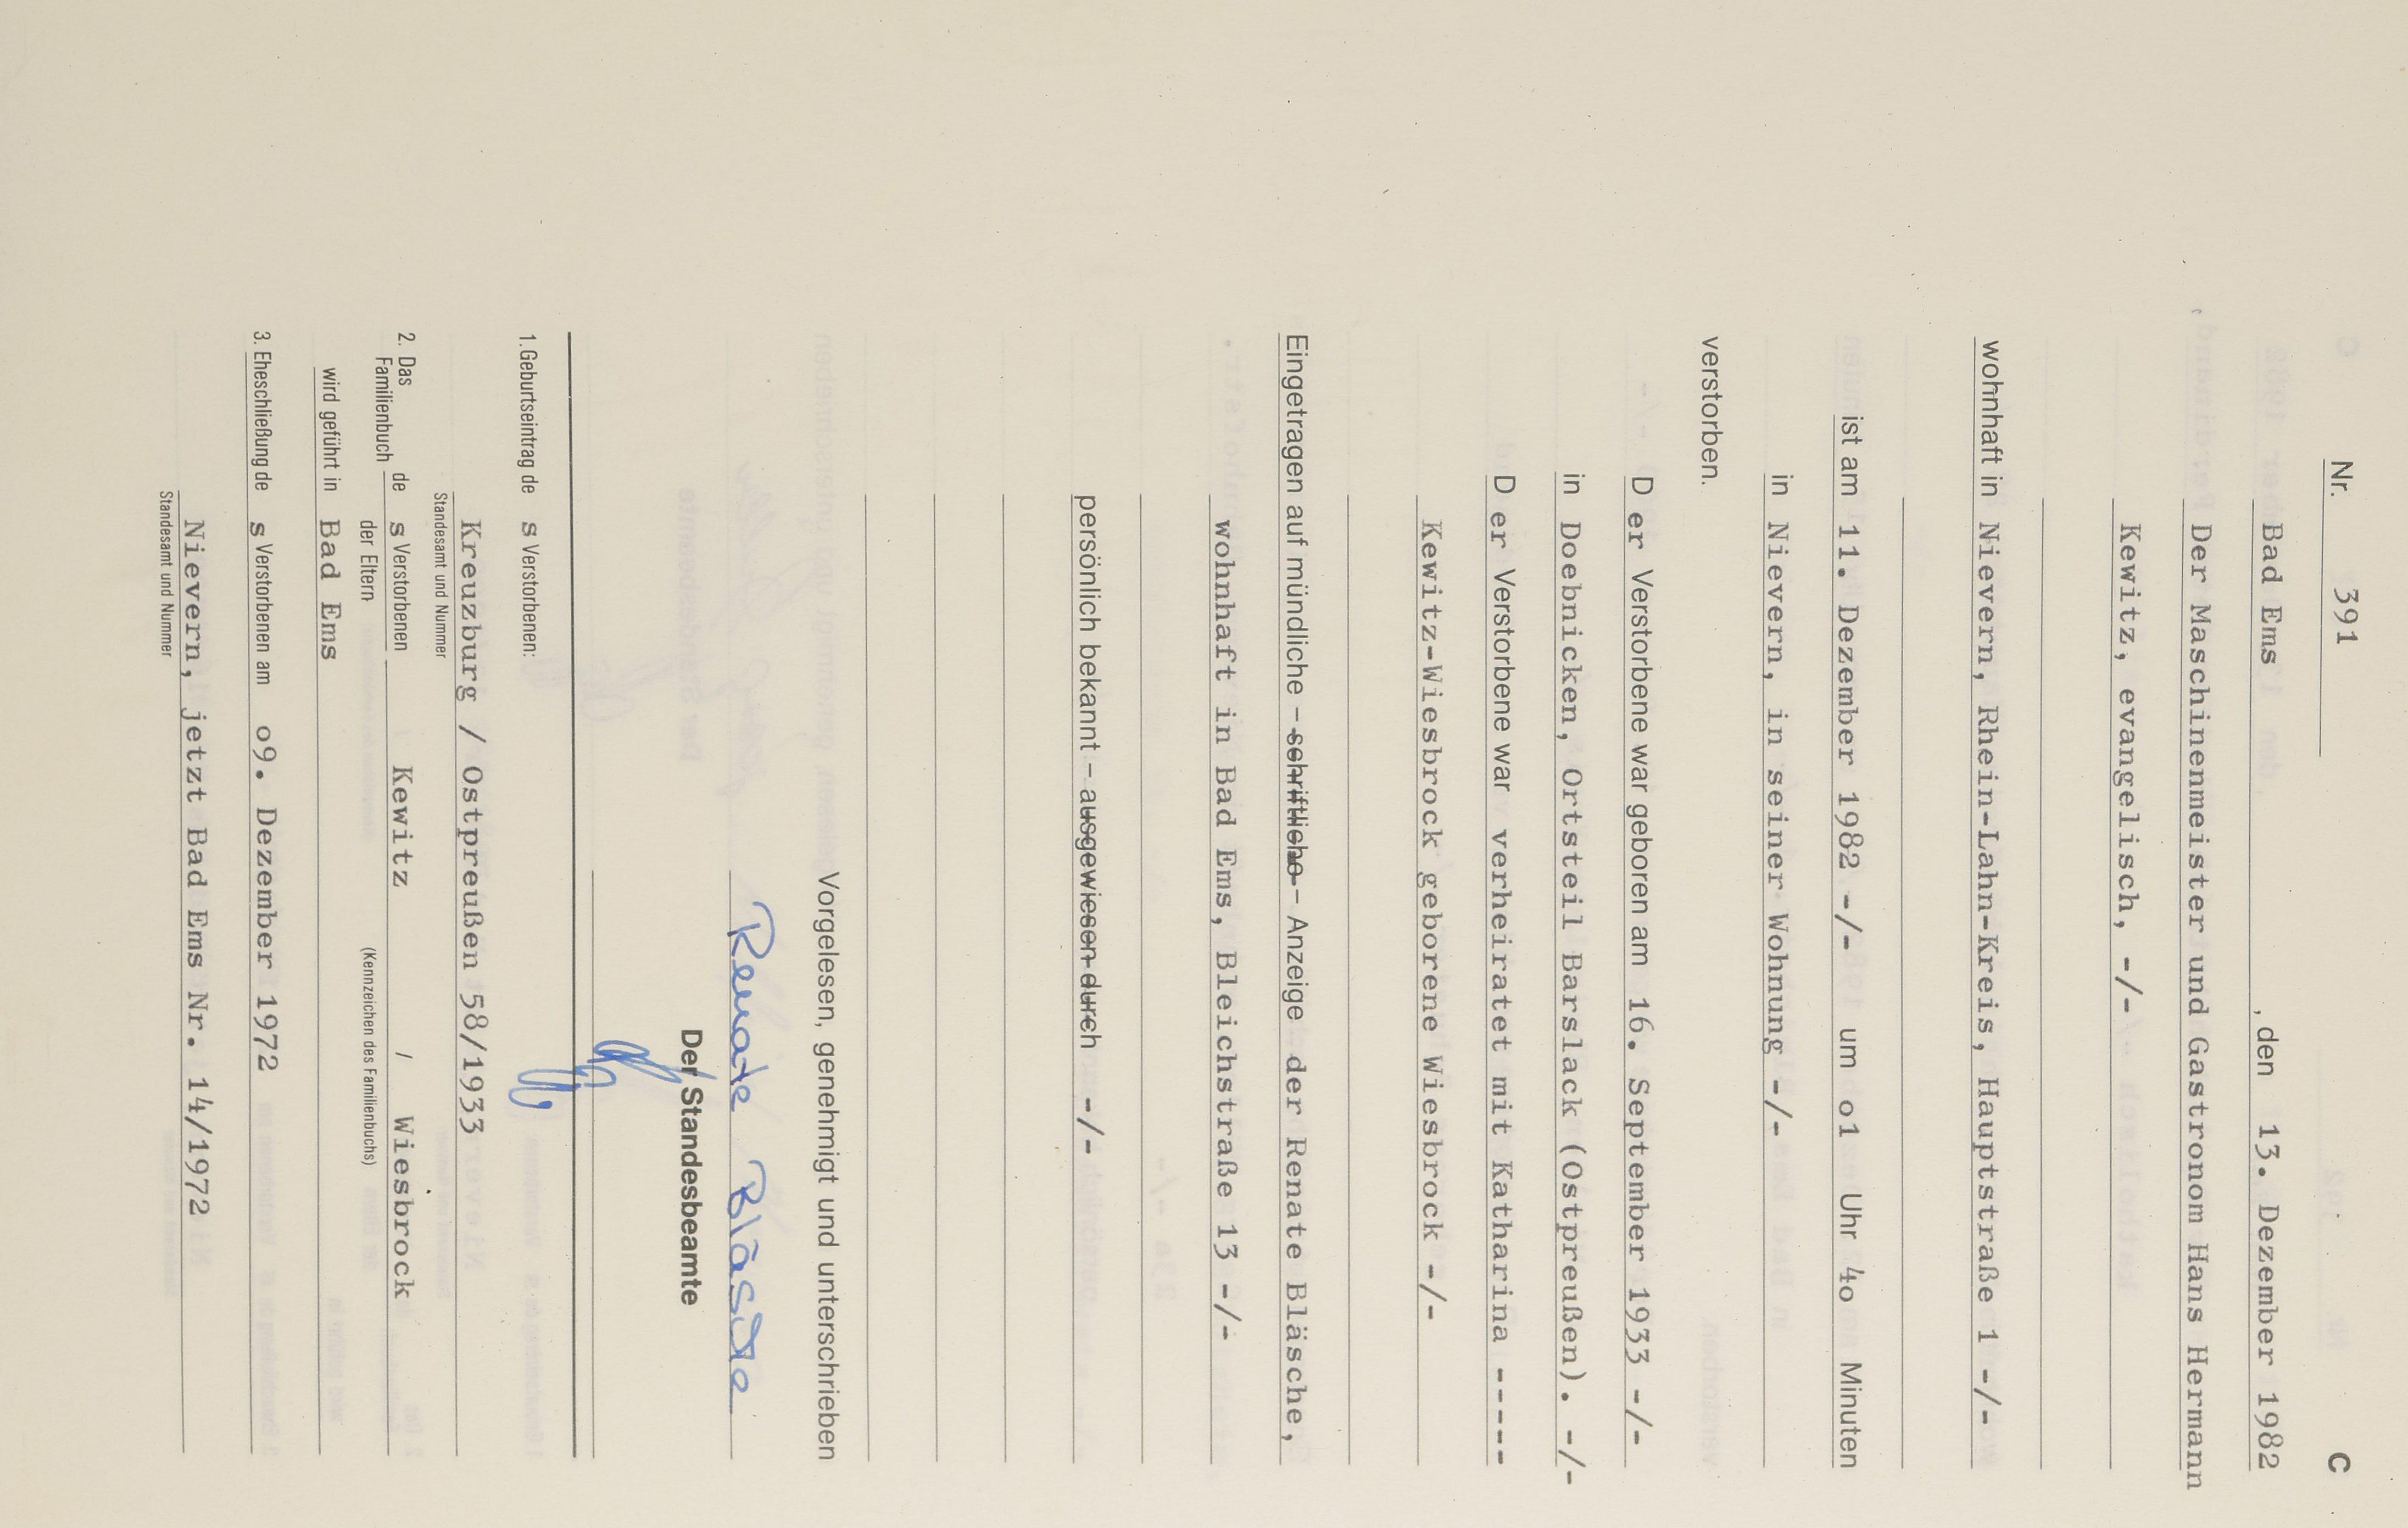 Nr. 391 C
Bad Ems , den 13. Dezember 1982
Der Maschinenmeister und Gastronom Hans Hermann
Kewitz, evangelisch, -/-
wohnhaft in Nievern, Rhein-Lahn-Kreis, Hauptstraße 1 -/-
ist am 11. Dezember 1982 -/- um o1 Uhr 4o Minuten
in Nievern, in seiner Wohnung -/-
verstorben.
D er Verstorbene war geboren am 16. September 1933 -/-
in Doebnicken, Ortsteil Barslack (Ostpreußen). -/-
D er Verstorbene war verheiratet mit Katharina -----
Kewitz-Wiesbrock geborene Wiesbrock -/-
Eingetragen auf mündliche – schriftliche – Anzeige der Renate Bläsche,
wohnhaft in Bad Ems, Bleichstraße 13 -/-
persönlich bekannt – ausgewiesen durch -/-
Vorgelesen, genehmigt und unterschrieben
Renate Bläsche
Der Standesbeamte
1. Geburtseintrag de s Verstorbenen:
Kreuzburg / Ostpreußen 58/1933
Standesamt und Nummer
2. Das Familienbuch de s Verstorbenen Kewitz / Wiesbrock
der Eltern (Kennzeichen des Familienbuchs)
wird geführt in Bad Ems
3. Eheschließung de s Verstorbenen am o9. Dezember 1972
Nievern, jetzt Bad Ems Nr. 14/1972
Standesamt und Nummer